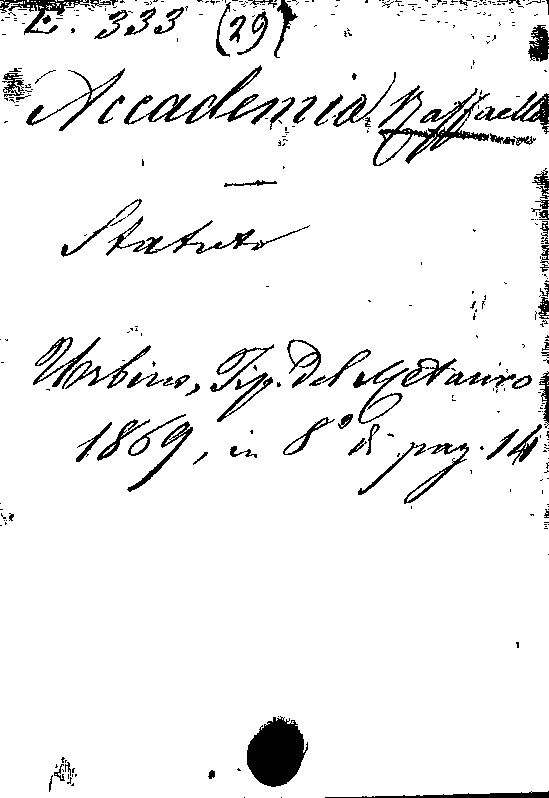 E. 333 (29)
Accademia Raffaello
—
Statuto
Urbino, Tip. del Metauro
1869, in 8° di pag. 14